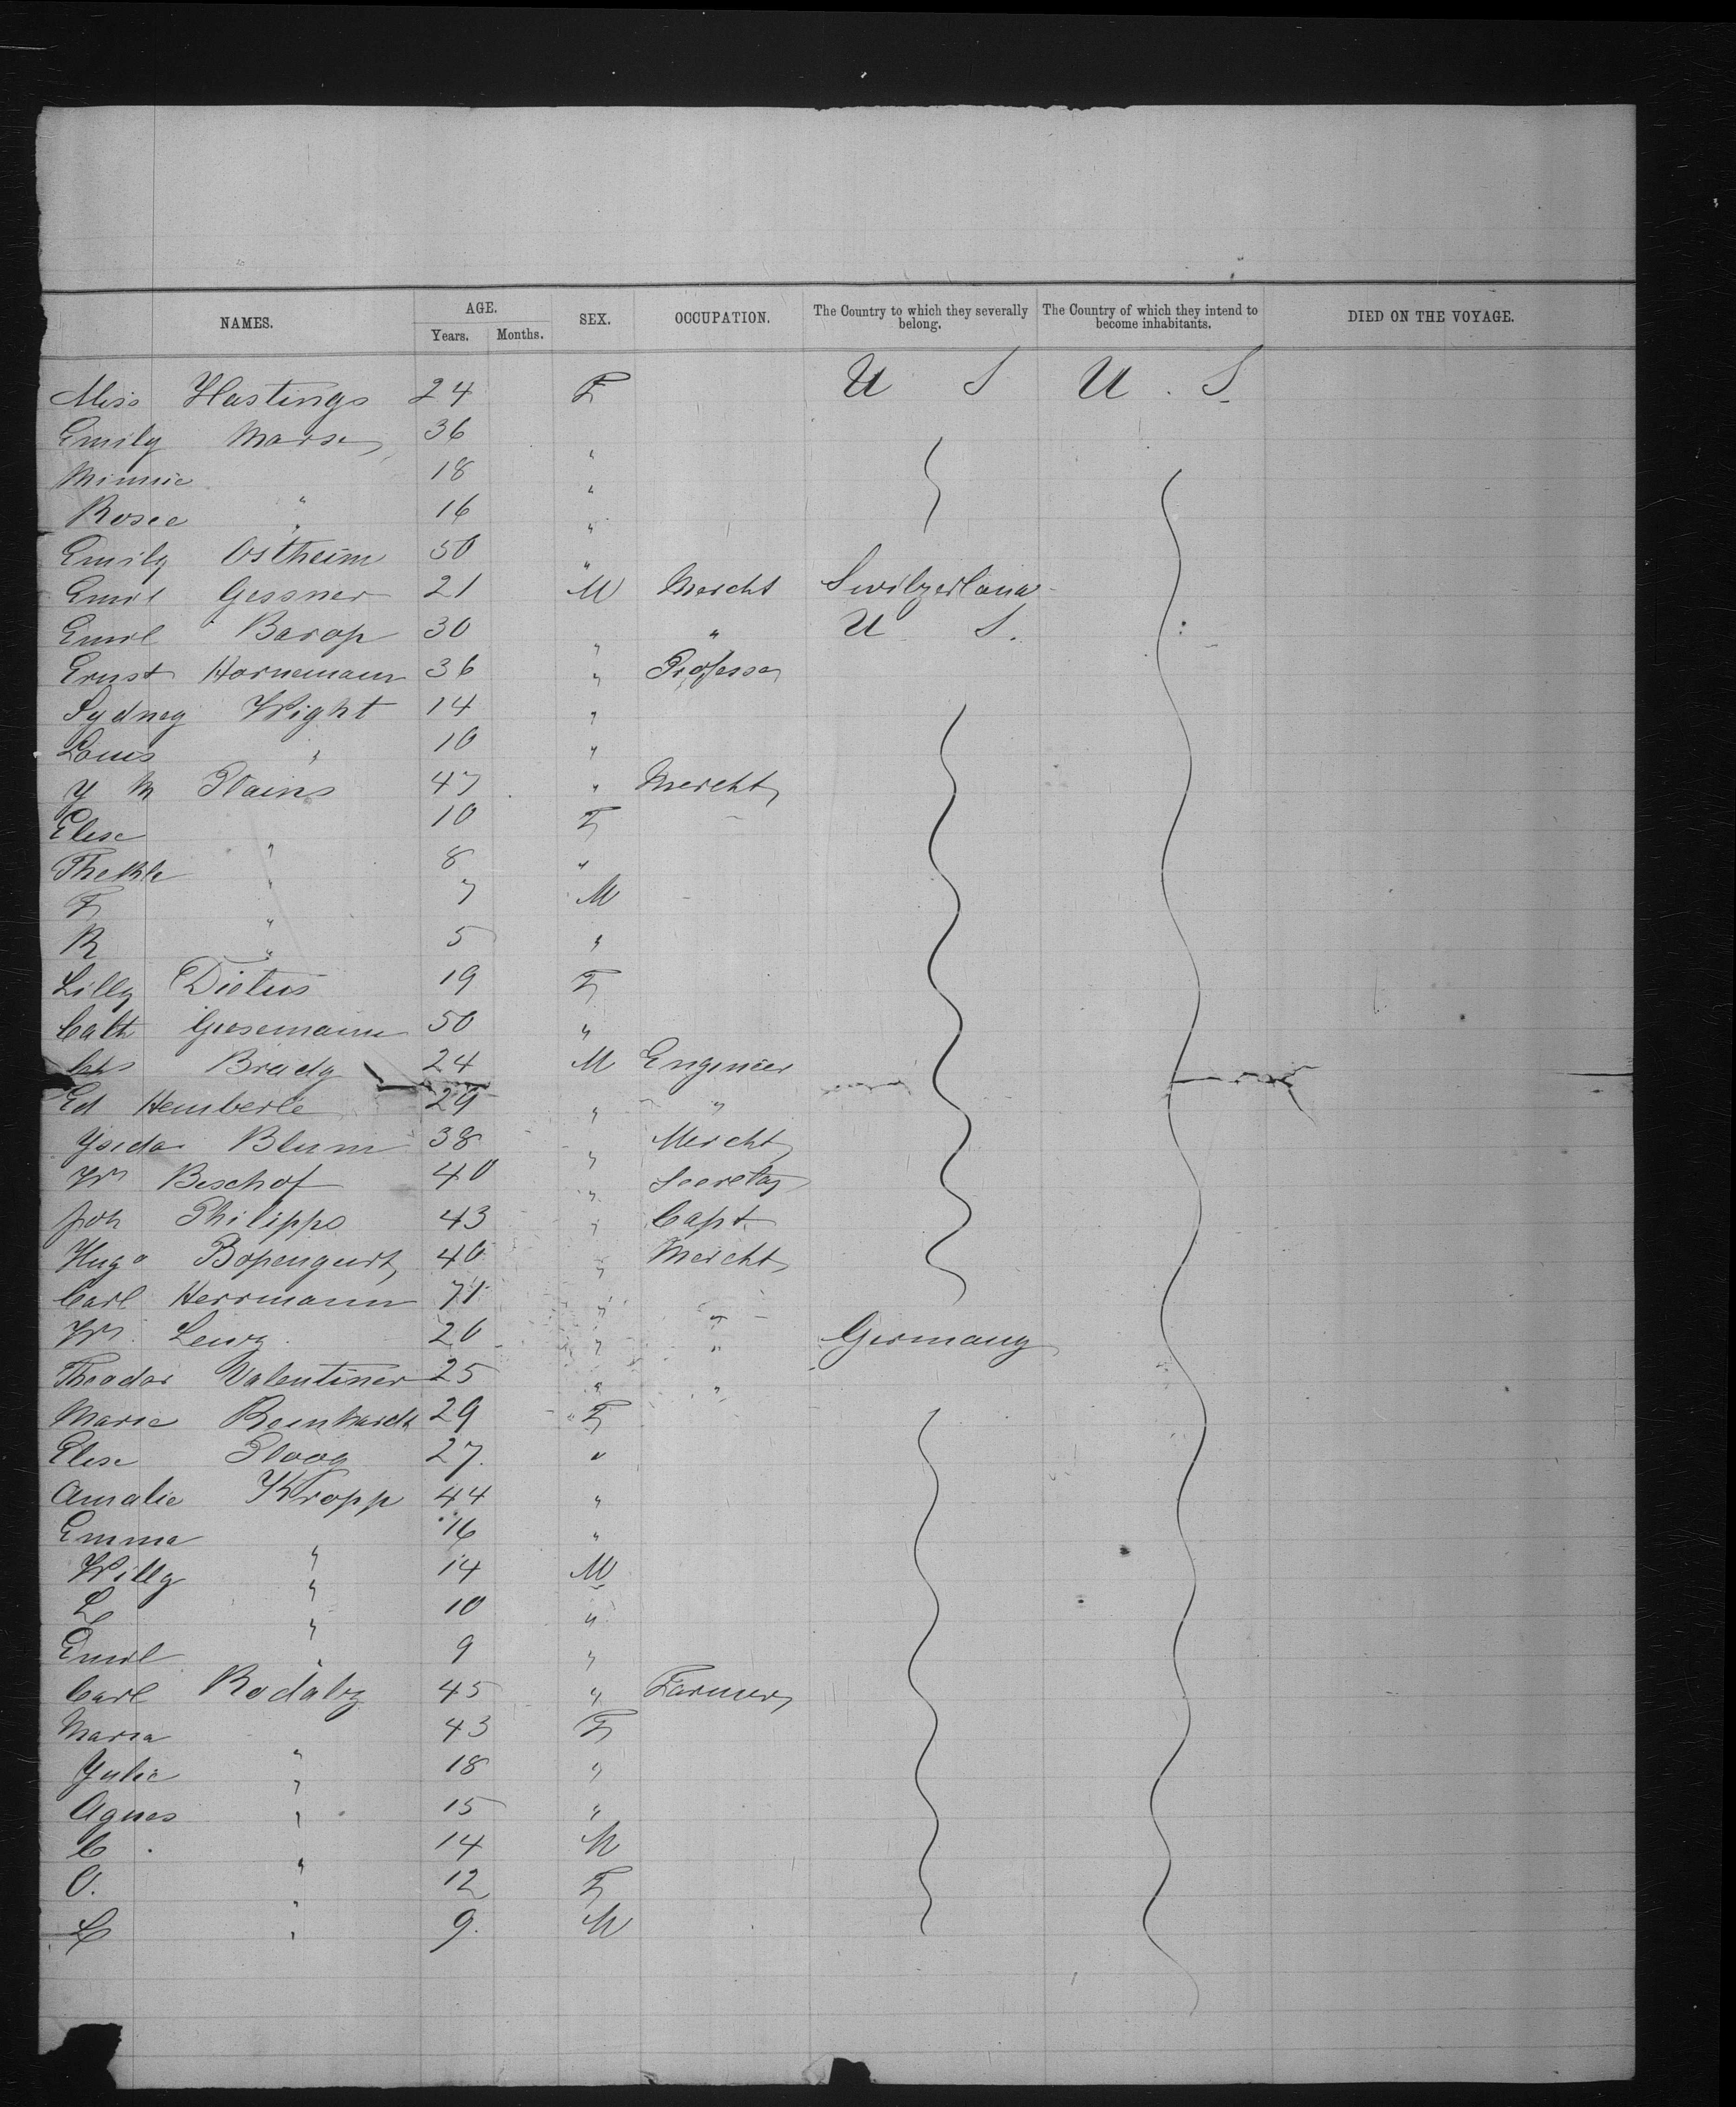 NAMES. AGE. SEX. OCCUPATION. The Country to which they severally belong. The Country of which they intend to become inhabitants. DIED ON THE VOYAGE.
Years. Months.
Miss Hastings 24 F U S U. S.
Emily Marse 36 "
Minnie " 18 "
Rosee " 16 "
Emily Ostheim 50 "
Emil Gessner 21 M Mercht Switzerland
Emil Barop 30 " " U S.
Ernst Hornemann 36 " Professor
Sydney Wight 14 "
Louis " 10 "
Y M Plains 47 " Mercht
Elise " 10 F
Thekle " 8 "
F " 7 M
R " 5 "
Lilly Dietus 19 F
Cath Giesemann 50 "
Chs Brady 24 M Engineer
Ed Hemberle 29 " "
Ysidor Blum 38 " Mercht
Wm Bischof 40 " Secretay
Joh Philipps 43 " Capt
Hugo 40 " Mercht
Carl Herrmann 71 " "
Wm Levy 26 " " Germany
Theodor Valentiner 25 " "
Marie Reinhardt 29 F
Elise Ploog 27. "
Amalie Kropp 44 "
Emma " 16 "
Willy " 14 M
L " 10 "
Emil " 9 "
Carl Rodaby 45 " Farmer
Maria " 43 F
Yulie " 18 "
Agnes " 15 "
C. " 14 M
O. " 12 F
L " 9. M